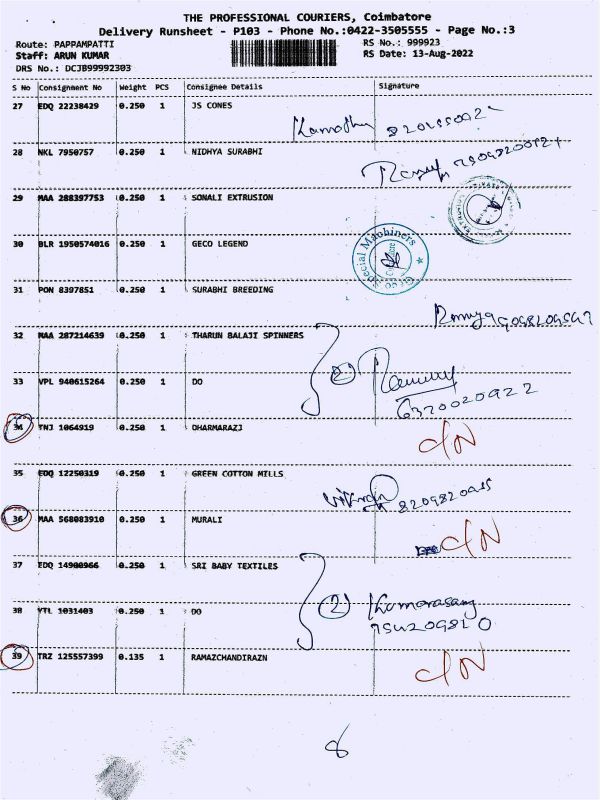 THE PROFESSIONAL COURIERS, Coimbatore
Delivery Runsheet - P103 - Phone No.:0422-3505555 - Page No.:3
Route: PAPPAMPATTI RS No.: 999923
Staff: ARUN KUMAR RS Date: 13-Aug-2022
DRS No.: DCJB99992303
S No Consignment No Weight PCS Consignee Details Signature
27 EDQ 22238429 0.250 1 JS CONES
28 NKL 7950757 0.250 1 NIDHYA SURABHI
29 MAA 288397753 0.250 1 SONALI EXTRUSION
30 BLR 1950574016 0.250 1 GECO LEGEND
Geco Special Machiners
31 PON 8397851 0.250 1 SURABHI BREEDING
Ramya
32 MAA 287214639 0.250 1 THARUN BALAJI SPINNERS
2
33 VPL 940615264 0.250 1 DO
6320020922
34 TNJ 1064919 0.250 1 DHARMARAZJ
C/N
35 EDQ 12250319 0.250 1 GREEN COTTON MILLS
8209820915
36 MAA 568083910 0.250 1 MURALI
C/N
37 EDQ 14900966 0.250 1 SRI BABY TEXTILES
2
38 VTL 1031403 0.250 1 DO
39 TRZ 125557399 0.135 1 RAMAZCHANDIRAZN
C/N
8